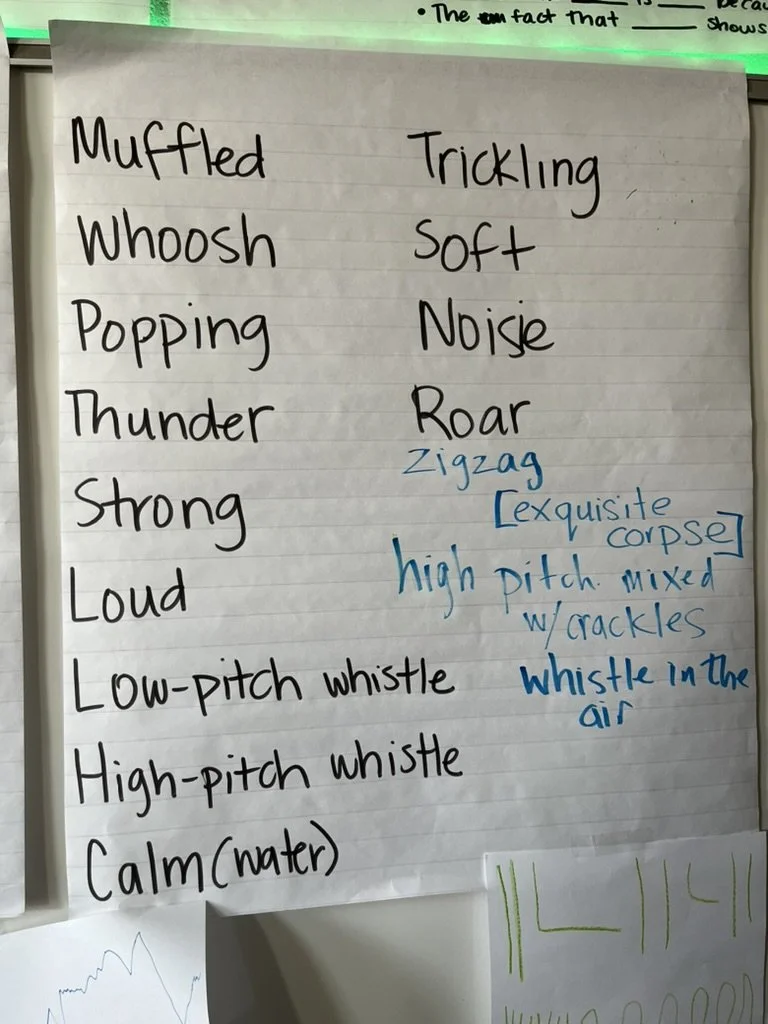 is becau
• The fact that ____ shows
Muffled
Whoosh
Popping
Thunder
Strong
Loud
Low-pitch whistle
High-pitch whistle
Calm (water)
Trickling
Soft
Noise
Roar
zigzag
[exquisite
corpse]
high pitch mixed
w/crackles
whistle in the
air